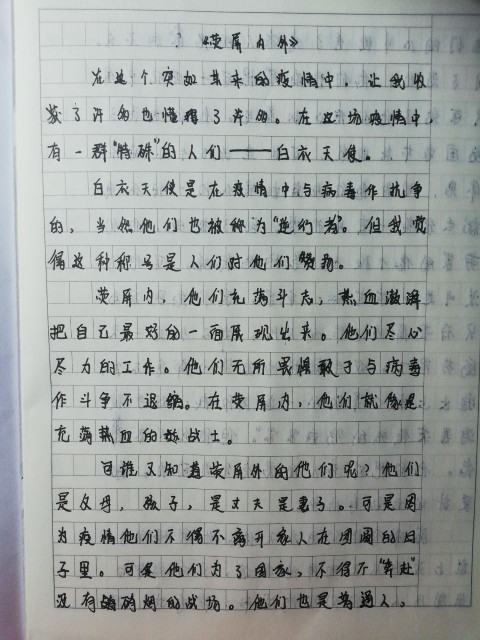 《荧屏内外》
在这个突如其来的疫情中，让我收
获了许多也懂得了许多。在这场疫情中，
有一群“特殊”的人们——白衣天使。
白衣天使是在疫情中与病毒作抗争
的，当然他们也被称为“逆行者”。但我觉
偈这种称号是人们对他们赞扬。
荧屏内，他们充满斗志，热血澎湃
把自己最好的一面展现出来。他们尽心
尽力的工作。他们无所畏惧敢于与病毒
作斗争不退缩。在荧屏内，他们就像是
充满热血的战士。
可谁又知道荧屏外的他们呢？他们
是父母，孩子，是丈夫是妻子。可是因
为疫情他们不偈不离开家人在团圆的日
子里。可是他们为了国家，不得不“奔赴”
没有硝烟的战场。他们也是普通人，